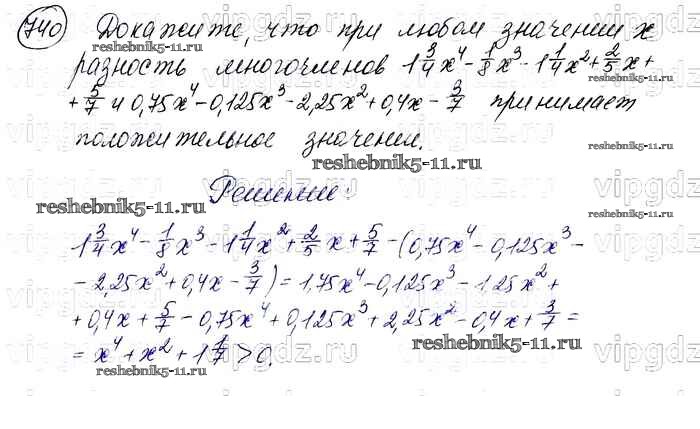 740 Докажите, что при любом значении x
reshebnik5-11.ru
разность многочленов 1 3/4 x⁴ - 1/8 x³ - 1 1/4 x² + 2/5 x +
+ 5/7 и 0,75x⁴ - 0,125x³ - 2,25x² + 0,4x - 3/7 принимает
положительное значение.
reshebnik5-11.ru
reshebnik5-11.ru
Решение:
reshebnik5-11.ru
1 3/4 x⁴ - 1/8 x³ - 1 1/4 x² + 2/5 x + 5/7 - (0,75x⁴ - 0,125x³ -
- 2,25x² + 0,4x - 3/7) = 1,75x⁴ - 0,125x³ - 1,25x² +
+ 0,4x + 5/7 - 0,75x⁴ + 0,125x³ + 2,25x² - 0,4x + 3/7 =
= x⁴ + x² + 1 1/7 > 0.
reshebnik5-11.ru
reshebnik5-11.ru
vipgdz.ru